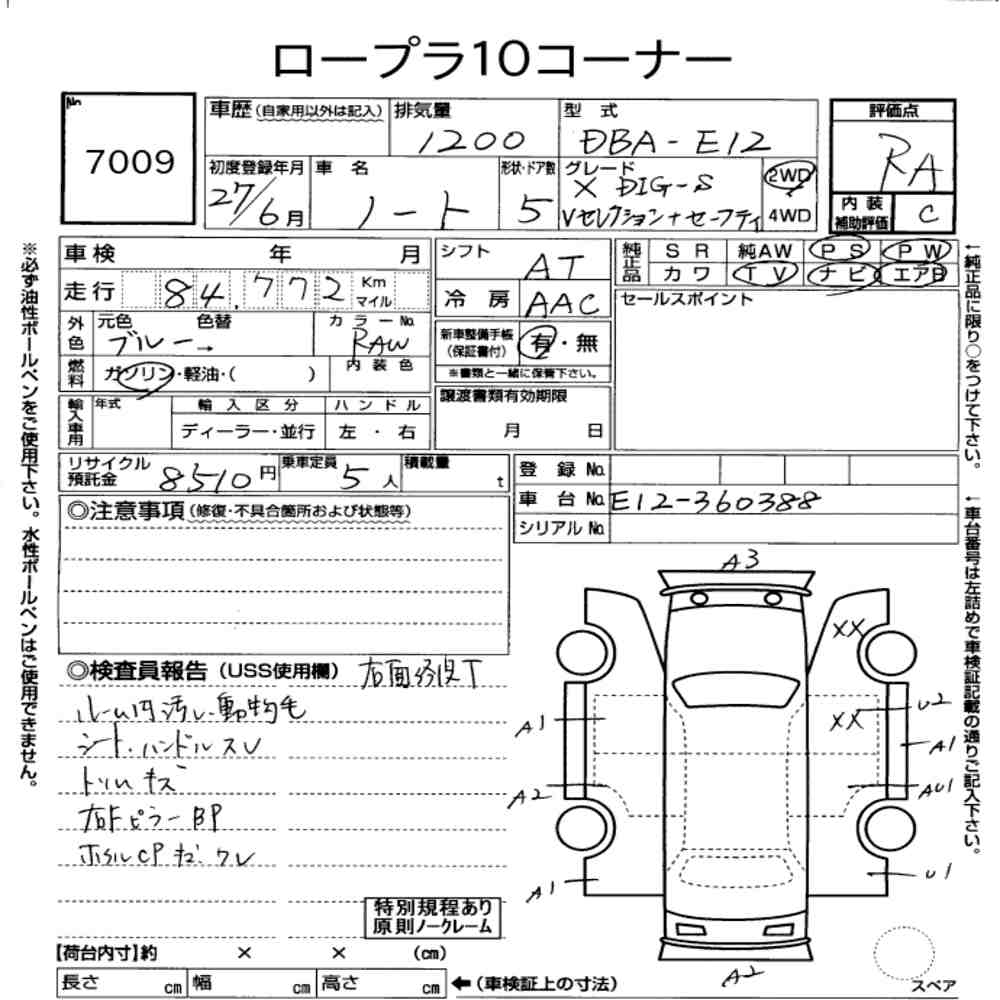 ロープラ10コーナー
No. 7009
車歴(自家用以外は記入) 排気量 1200 型式 DBA-E12 評価点 RA
初度登録年月 27/6月 車名 ノート 形状・ドア数 5 グレード X DIG-S Vセレクション+セーフティ 2WD 4WD
内装補助評価 C
車検 年 月 シフト AT 純正品 SR 純AW PS PW
カワ TV ナビ エアB
走行 84,772 Km マイル 冷房 AAC セールスポイント
外色 元色 ブルー→ 色替 カラーNo. RAW 新車整備手帳(保証書付) 有・無
内装色 ※書類と一緒に保管下さい。
燃料 ガソリン・軽油・( ) 譲渡書類有効期限 月 日
輸入車用 年式 輸入区分 ハンドル
ディーラー・並行 左・右
リサイクル預託金 8510円 乗車定員 5人 積載量 t 登録No.
車台No. E12-360388
シリアルNo.
◎注意事項(修復・不具合箇所および状態等)
◎検査員報告(USS使用欄) 右面修復T
ルーム内汚レ動物毛
シート・ハンドルスレ
トリムキズ
右Fピラー BP
ホイルCPキズ・ワレ
A3
XX
A1 XX U2
A1
A2 AU1
A1 U1
A2
特別規程あり
原則ノークレーム
【荷台内寸】約 × × (cm)
長さ cm 幅 cm 高さ cm ←(車検証上の寸法)
スペア
※必ず油性ボールペンをご使用下さい。水性ボールペンはご使用できません。
←純正品に限り○をつけて下さい。
←車台番号は左詰めで車検証記載の通りご記入下さい。